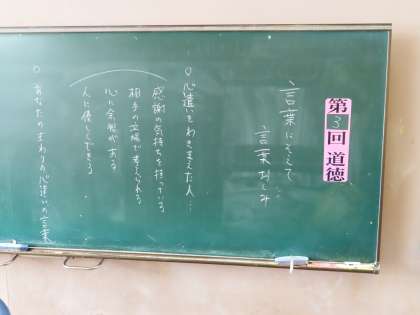 第3回道徳
言葉にそえて
言葉なしみ
○ 心遣いをわきまえた人…
感謝の気持ちを持っている
相手の立場で考えられる
心に余裕がある
人に優しくできる
○ あなたのまわりの心遣いの言葉